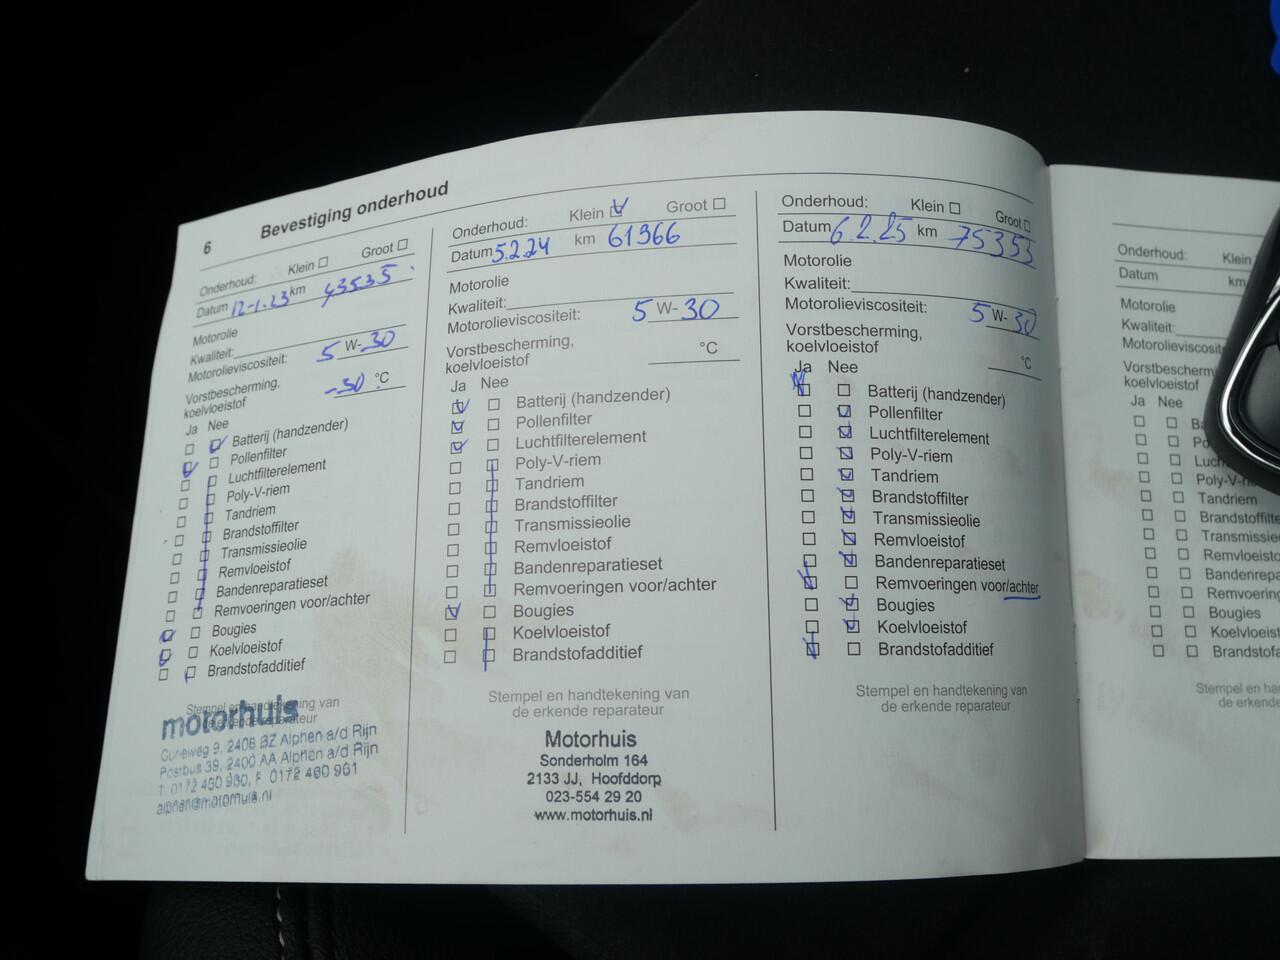 6 Bevestiging onderhoud
Onderhoud: Klein Groot
Datum 12-1.23 km 43535
Motorolie
Kwaliteit:
Motorolieviscositeit: 5 W-30
Vorstbescherming,
koelvloeistof -30 °C
Ja Nee
Batterij (handzender)
Pollenfilter
Luchtfilterelement
Poly-V-riem
Tandriem
Brandstoffilter
Transmissieolie
Remvloeistof
Bandenreparatieset
Remvoeringen voor/achter
Bougies
Koelvloeistof
Brandstofadditief
Stempel en handtekening van
de erkende reparateur
motorhuis
2408 BZ Alphen a/d Rijn
Postbus 39, 2400 AA Alphen a/d Rijn
T. 0172 460 960, F. 0172 460 961
alphen@motorhuis.nl
Onderhoud: Klein Groot
Datum 5.2.24 km 61366
Motorolie
Kwaliteit:
Motorolieviscositeit: 5 W-30
Vorstbescherming,
koelvloeistof °C
Ja Nee
Batterij (handzender)
Pollenfilter
Luchtfilterelement
Poly-V-riem
Tandriem
Brandstoffilter
Transmissieolie
Remvloeistof
Bandenreparatieset
Remvoeringen voor/achter
Bougies
Koelvloeistof
Brandstofadditief
Stempel en handtekening van
de erkende reparateur
Motorhuis
Sonderholm 164
2133 JJ, Hoofddorp
023-554 29 20
www.motorhuis.nl
Onderhoud: Klein Groot
Datum 6.2.25 km 75353
Motorolie
Kwaliteit:
Motorolieviscositeit: 5 W-30
Vorstbescherming,
koelvloeistof °C
Ja Nee
Batterij (handzender)
Pollenfilter
Luchtfilterelement
Poly-V-riem
Tandriem
Brandstoffilter
Transmissieolie
Remvloeistof
Bandenreparatieset
Remvoeringen voor/achter
Bougies
Koelvloeistof
Brandstofadditief
Stempel en handtekening van
de erkende reparateur
Onderhoud: Klein
Datum km
Motorolie
Kwaliteit:
Motorolieviscosit
Vorstbescherming
koelvloeistof
Ja Nee
Ba
Po
Luch
Poly-V-r
Tandriem
Brandstoffilte
Transmissie
Remvloeisto
Bandenrepa
Remvoering
Bougies
Koelvloeist
Brandstofa
Stempel en ha
de erkende